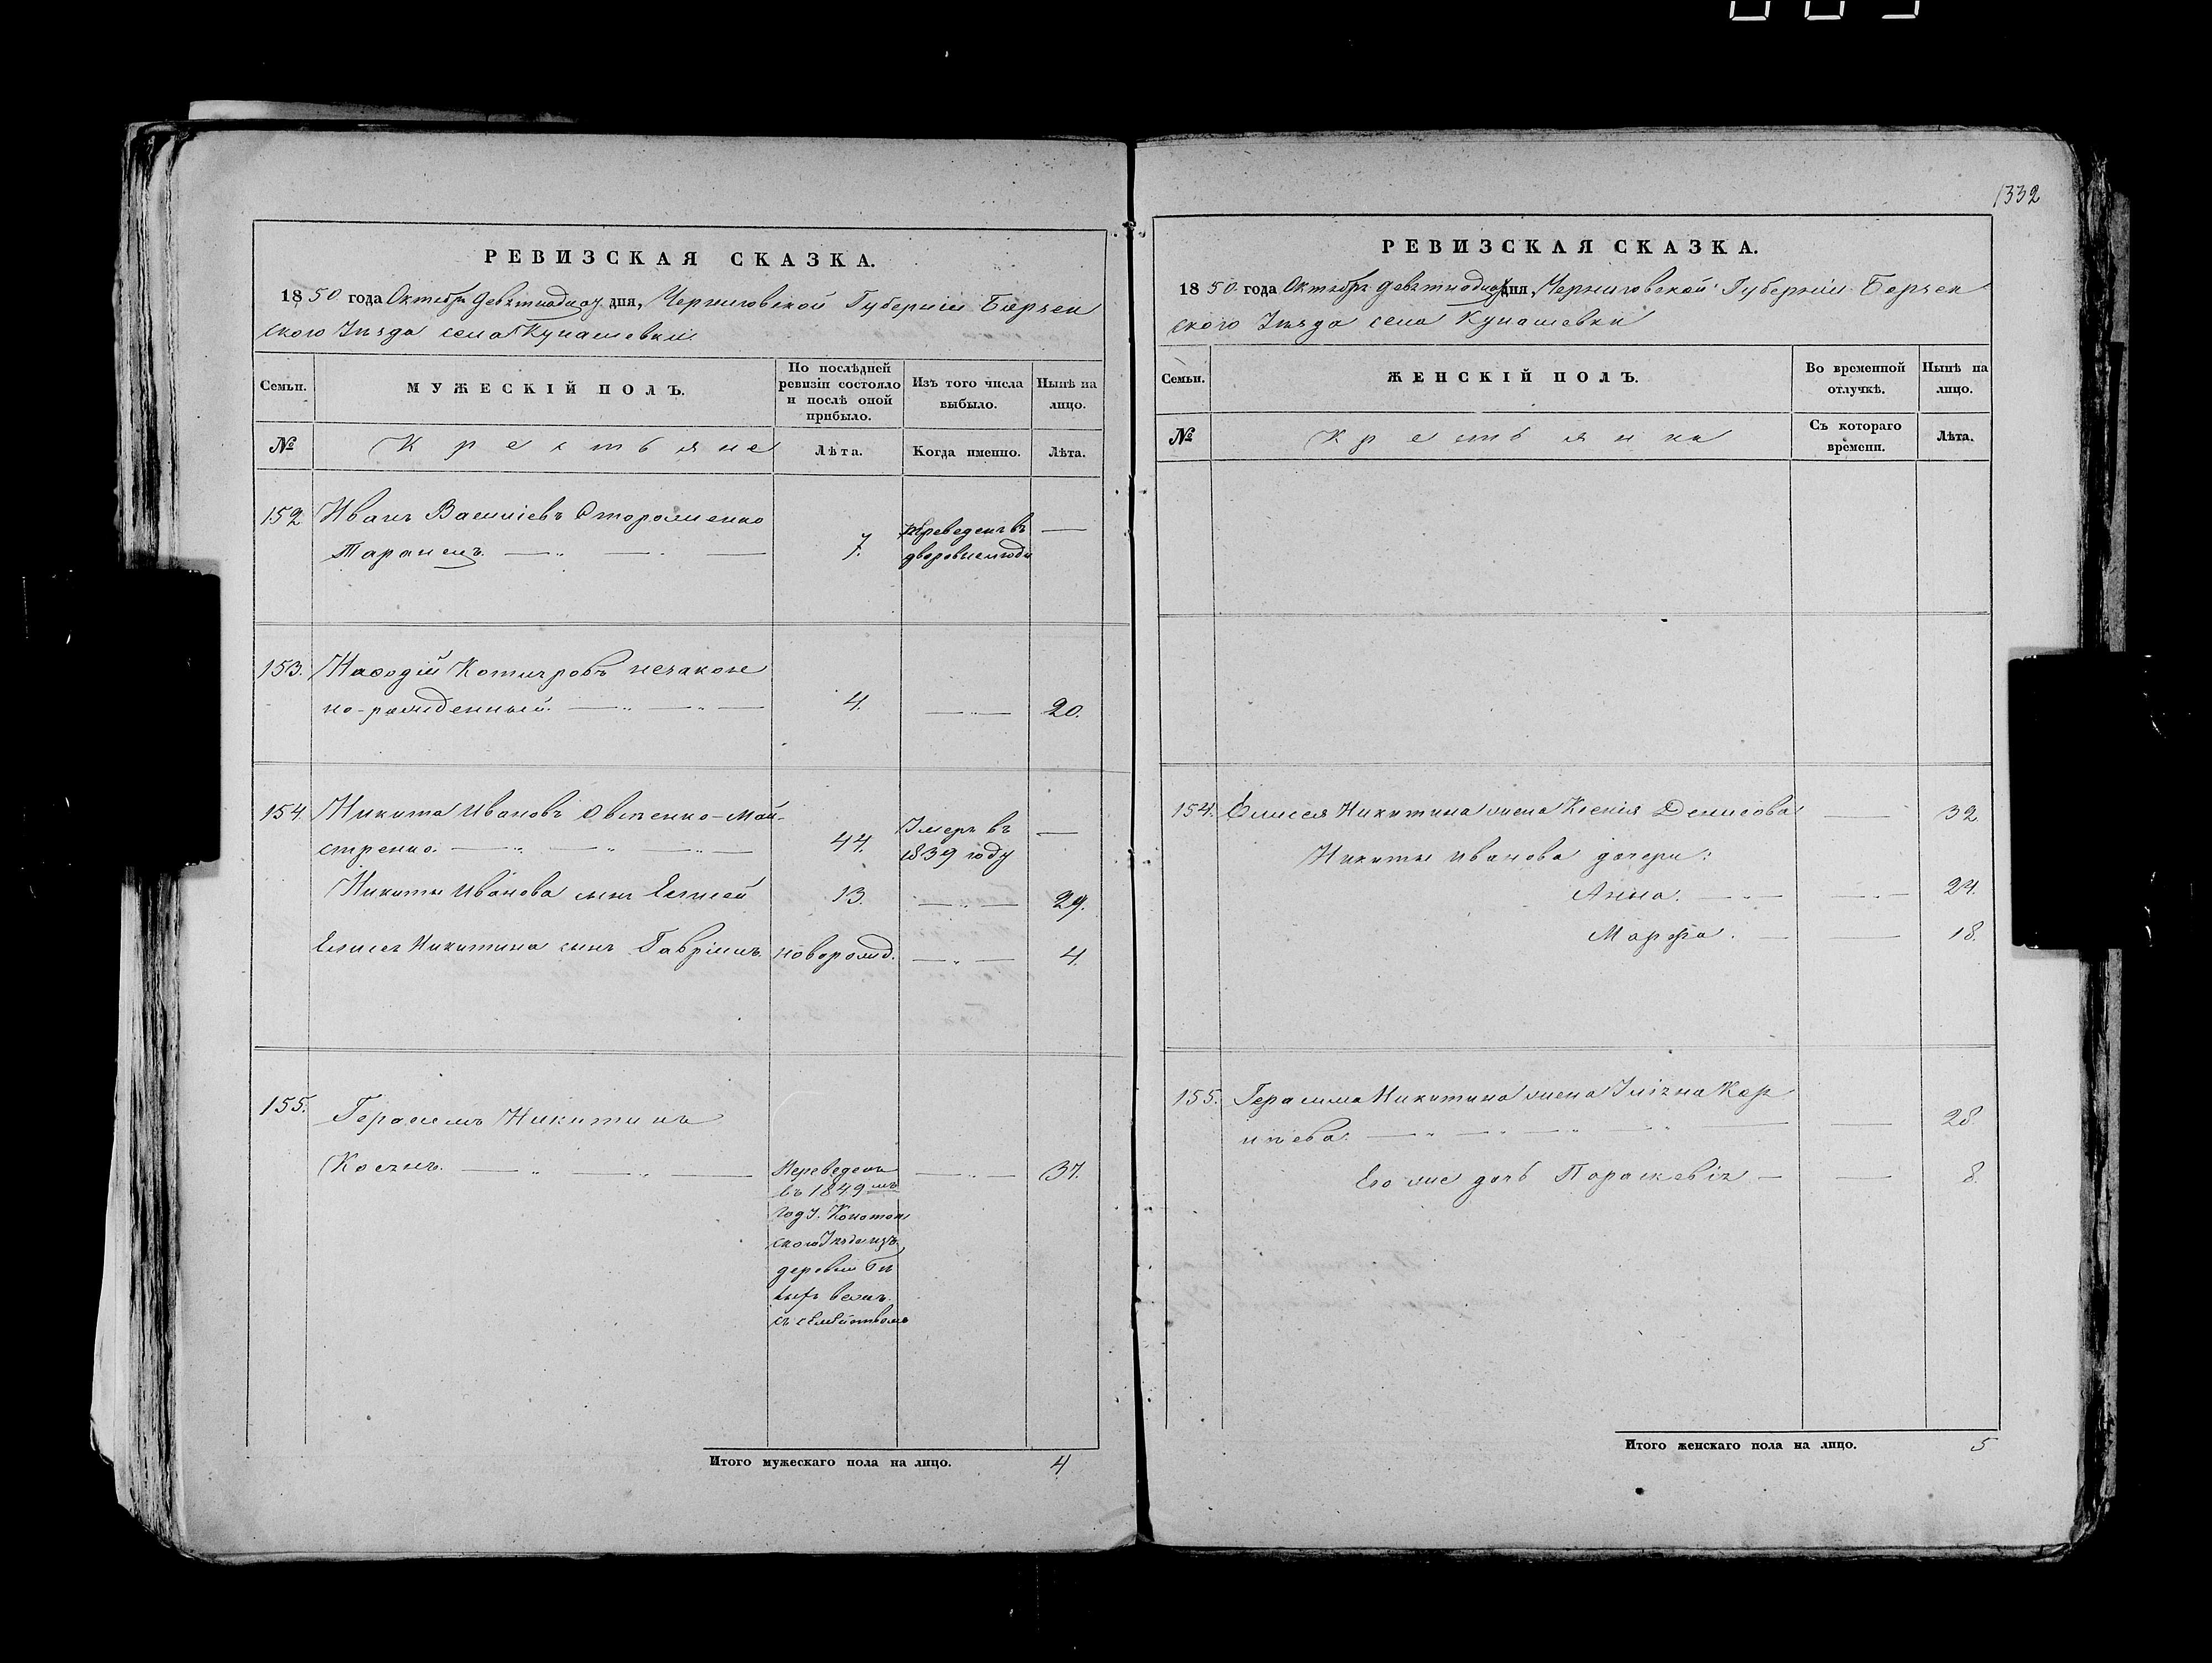 1332
РЕВИЗСКАЯ СКАЗКА.
1850 года Октября дня, Черниговской Губерніи Борзен
ского Уѣзда села Кунашовки
Семьи.
МУЖЕСКІЙ ПОЛЪ.
По послѣдней ревизіи состояло и послѣ оной прибыло.
Изъ того числа выбыло.
Нынѣ на лицо.
№
Крестьяне
Лѣта.
Когда именно.
Лѣта.
152 Иванъ Василіевъ
7. переведенъ въ дворовые люди —
153. Котляровъ незакон
но-рожденный. 4. — 20.
154 Никита Ивановъ Овсіенко-Май-
стренко. 44. Умеръ въ 1839 году —
Никиты Иванова сынъ Елисей 13. — 29.
Елисея Никитина сынъ Гавріилъ. новорожд. — 4.
155. Герасимъ Никитинъ
Косачъ. — 37.
Переведенъ
въ 1849 мъ
году. Конотоп
ского Уѣзда изъ
деревни
съ семействомъ
Итого мужескаго пола на лицо. 4
РЕВИЗСКАЯ СКАЗКА.
1850 года Октября дня, Черниговской Губерніи Борзен
ского Уѣзда села Кунашовки
Семьи.
ЖЕНСКІЙ ПОЛЪ.
Во временной отлучкѣ.
Нынѣ на лицо.
№
Крестьянки
Съ котораго времени.
Лѣта.
154. Елисея Никитина жена Ксенія Денисова — 32.
Никиты Иванова дочери:
Анна. — 24.
Марфа. — 18.
155. Герасима Никитина жена Кар
пѣева. — 28.
Его же дочь Параскевія — 8.
Итого женскаго пола на лицо. 5